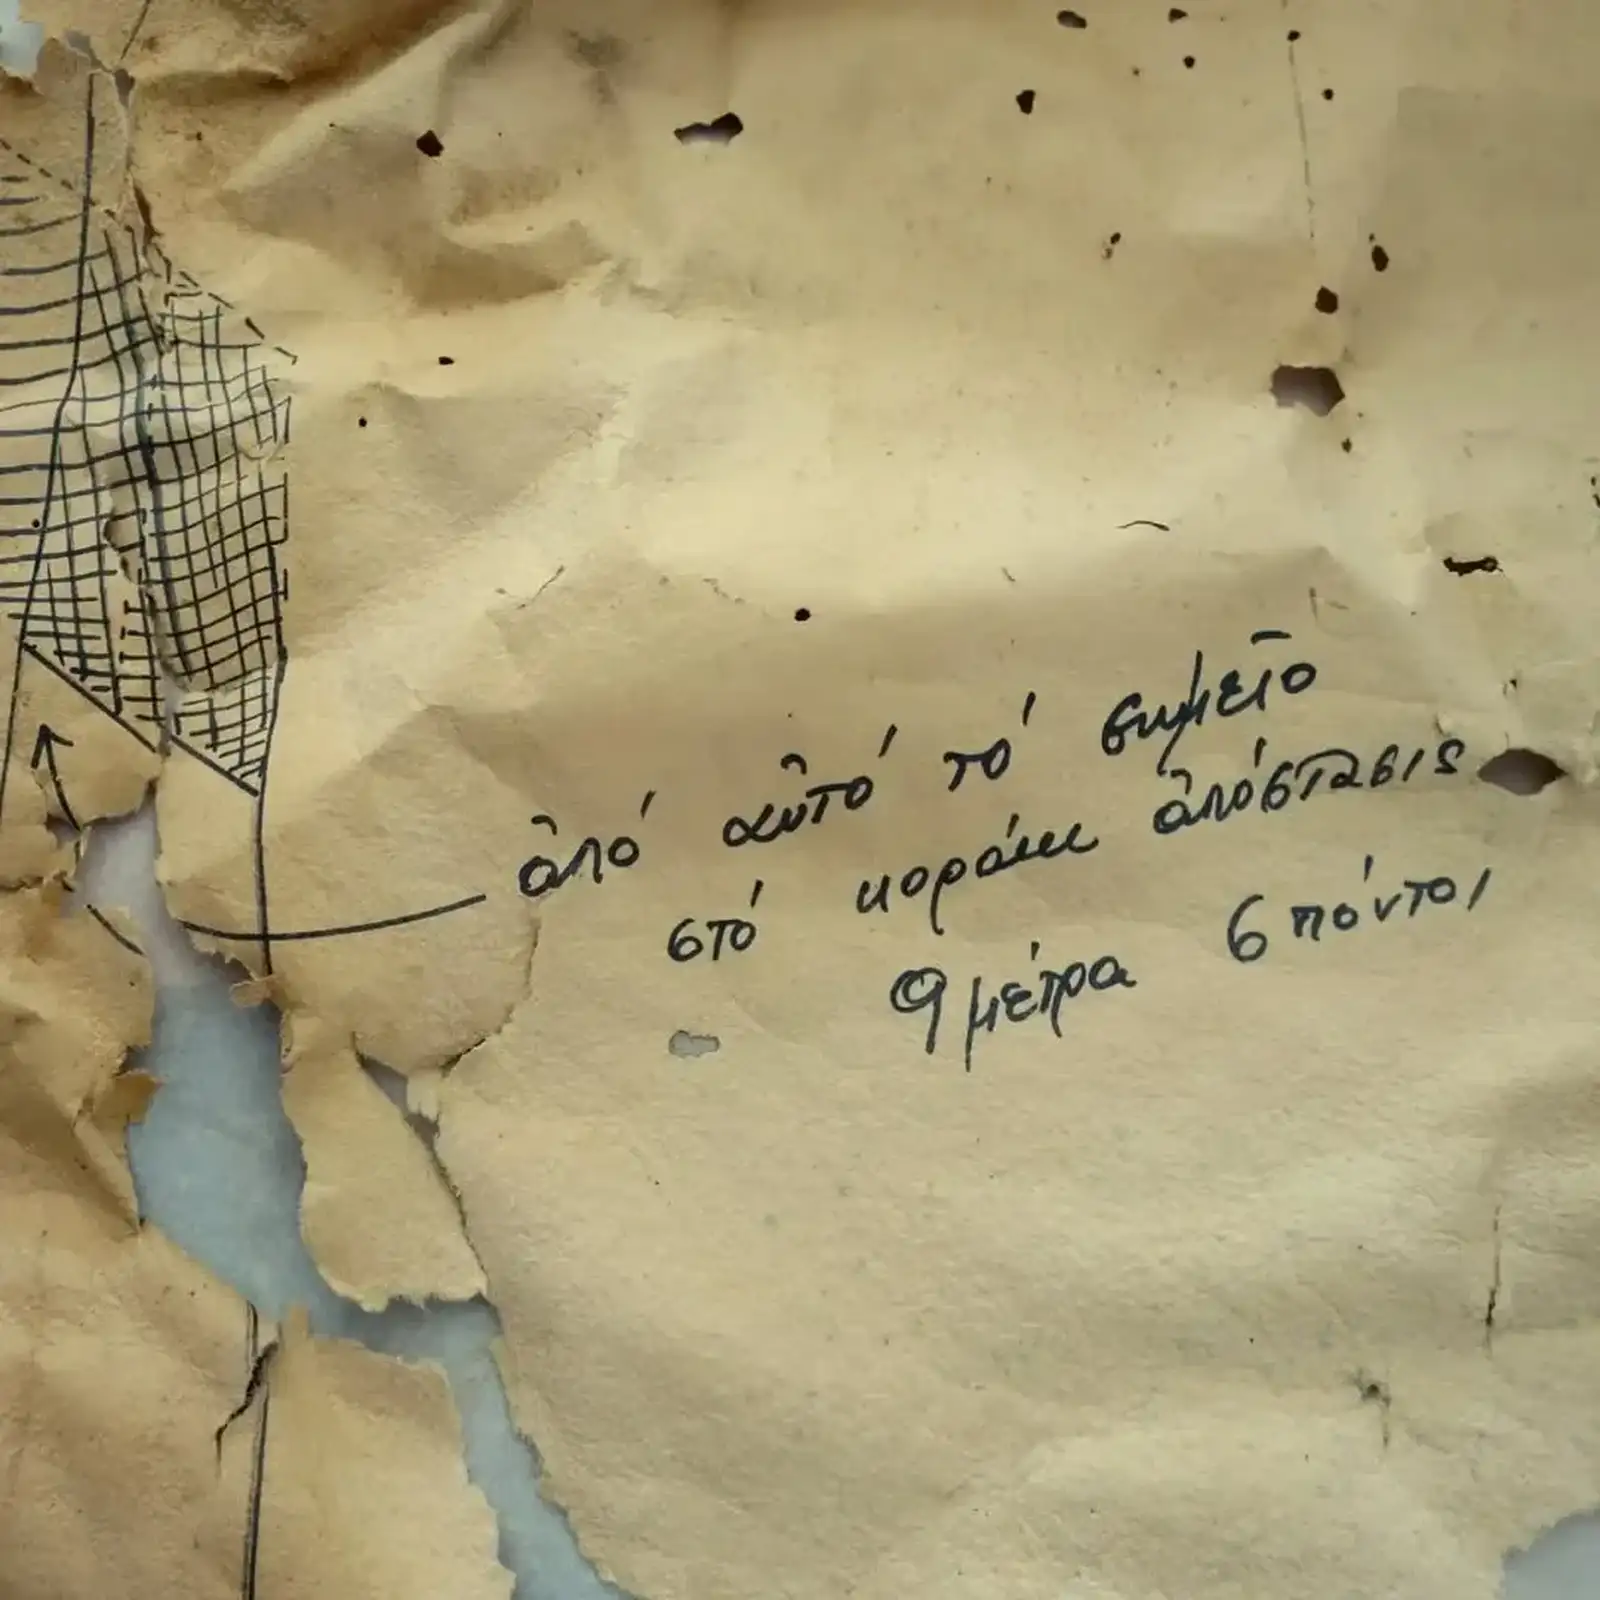 ἀπό αὐτό τό σημεῖο
στό κοράκι ἀπόστασις
9 μέτρα 6 πόντοι